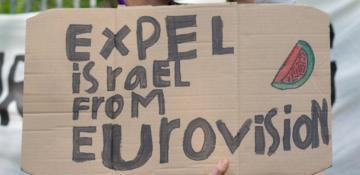 EXPEL
iSRAEL
FROM
EUROViSiON